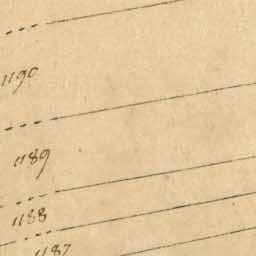 1190
1189
1188
1187